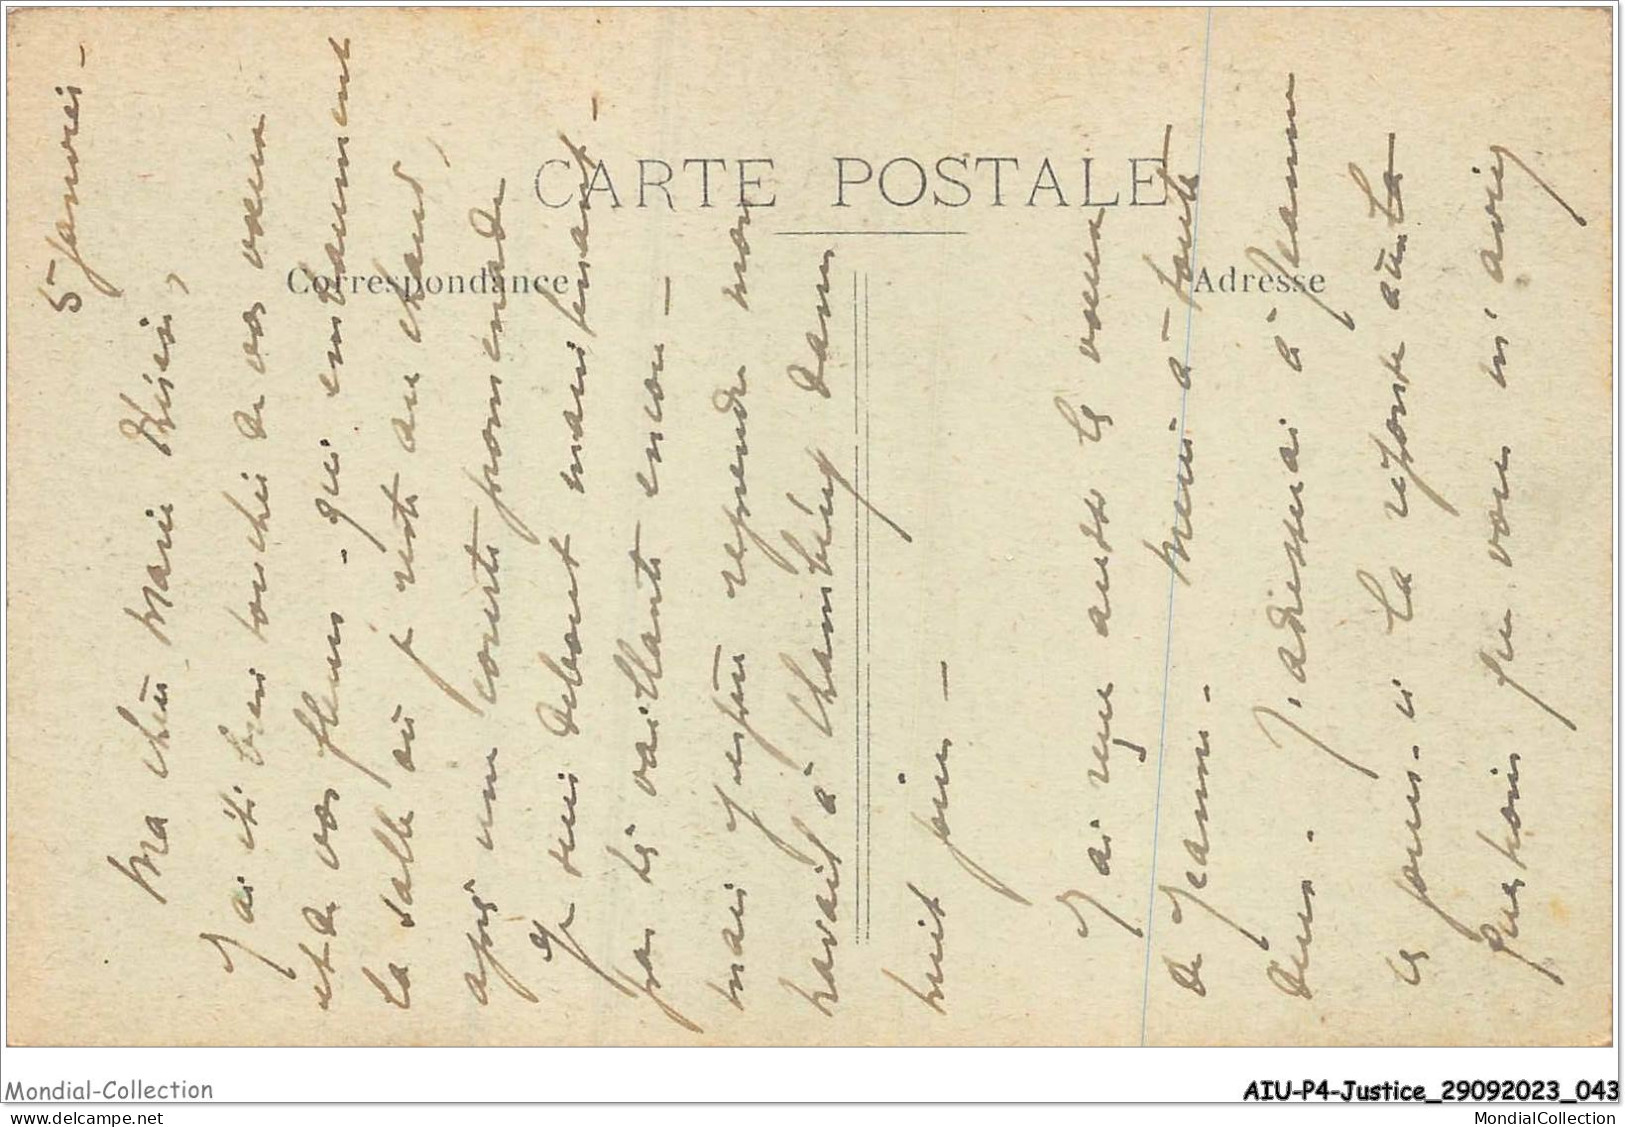 CARTE POSTALE
Correspondance
Adresse
5 Janvier -
Ma chère Marie
J'ai été bien touchée de vos vœux
et de vos fleurs - qui embaument
la salle où je reste au chaud,
après une courte promenade
Je suis debout maintenant -
pas très vaillante encore -
mais j'espère reprendre mon
travail à Chambéry dans
huit jours -
J'ai reçu aussi les vœux
de Jeanne - Merci à toutes
deux. J'adresserai à Jeanne
ces jours-ci la réponse à la
question que vous m'aviez
Mondial-Collection
AIU-P4-Justice_29092023_043
www.delcampe.net
MondialCollection